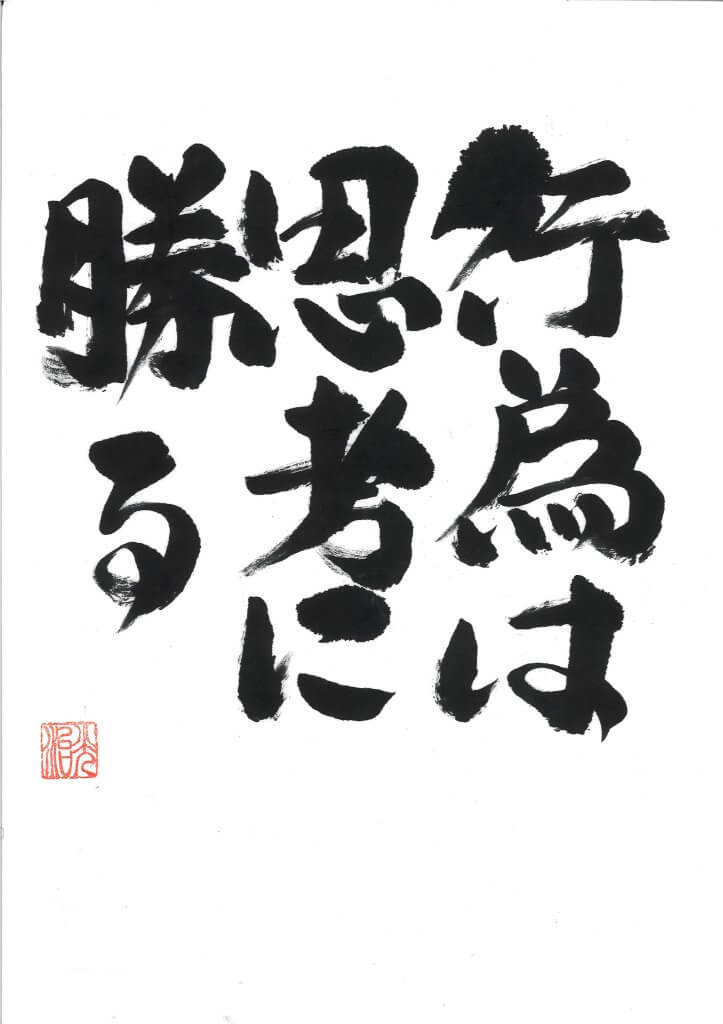 行為は
思考に
勝る